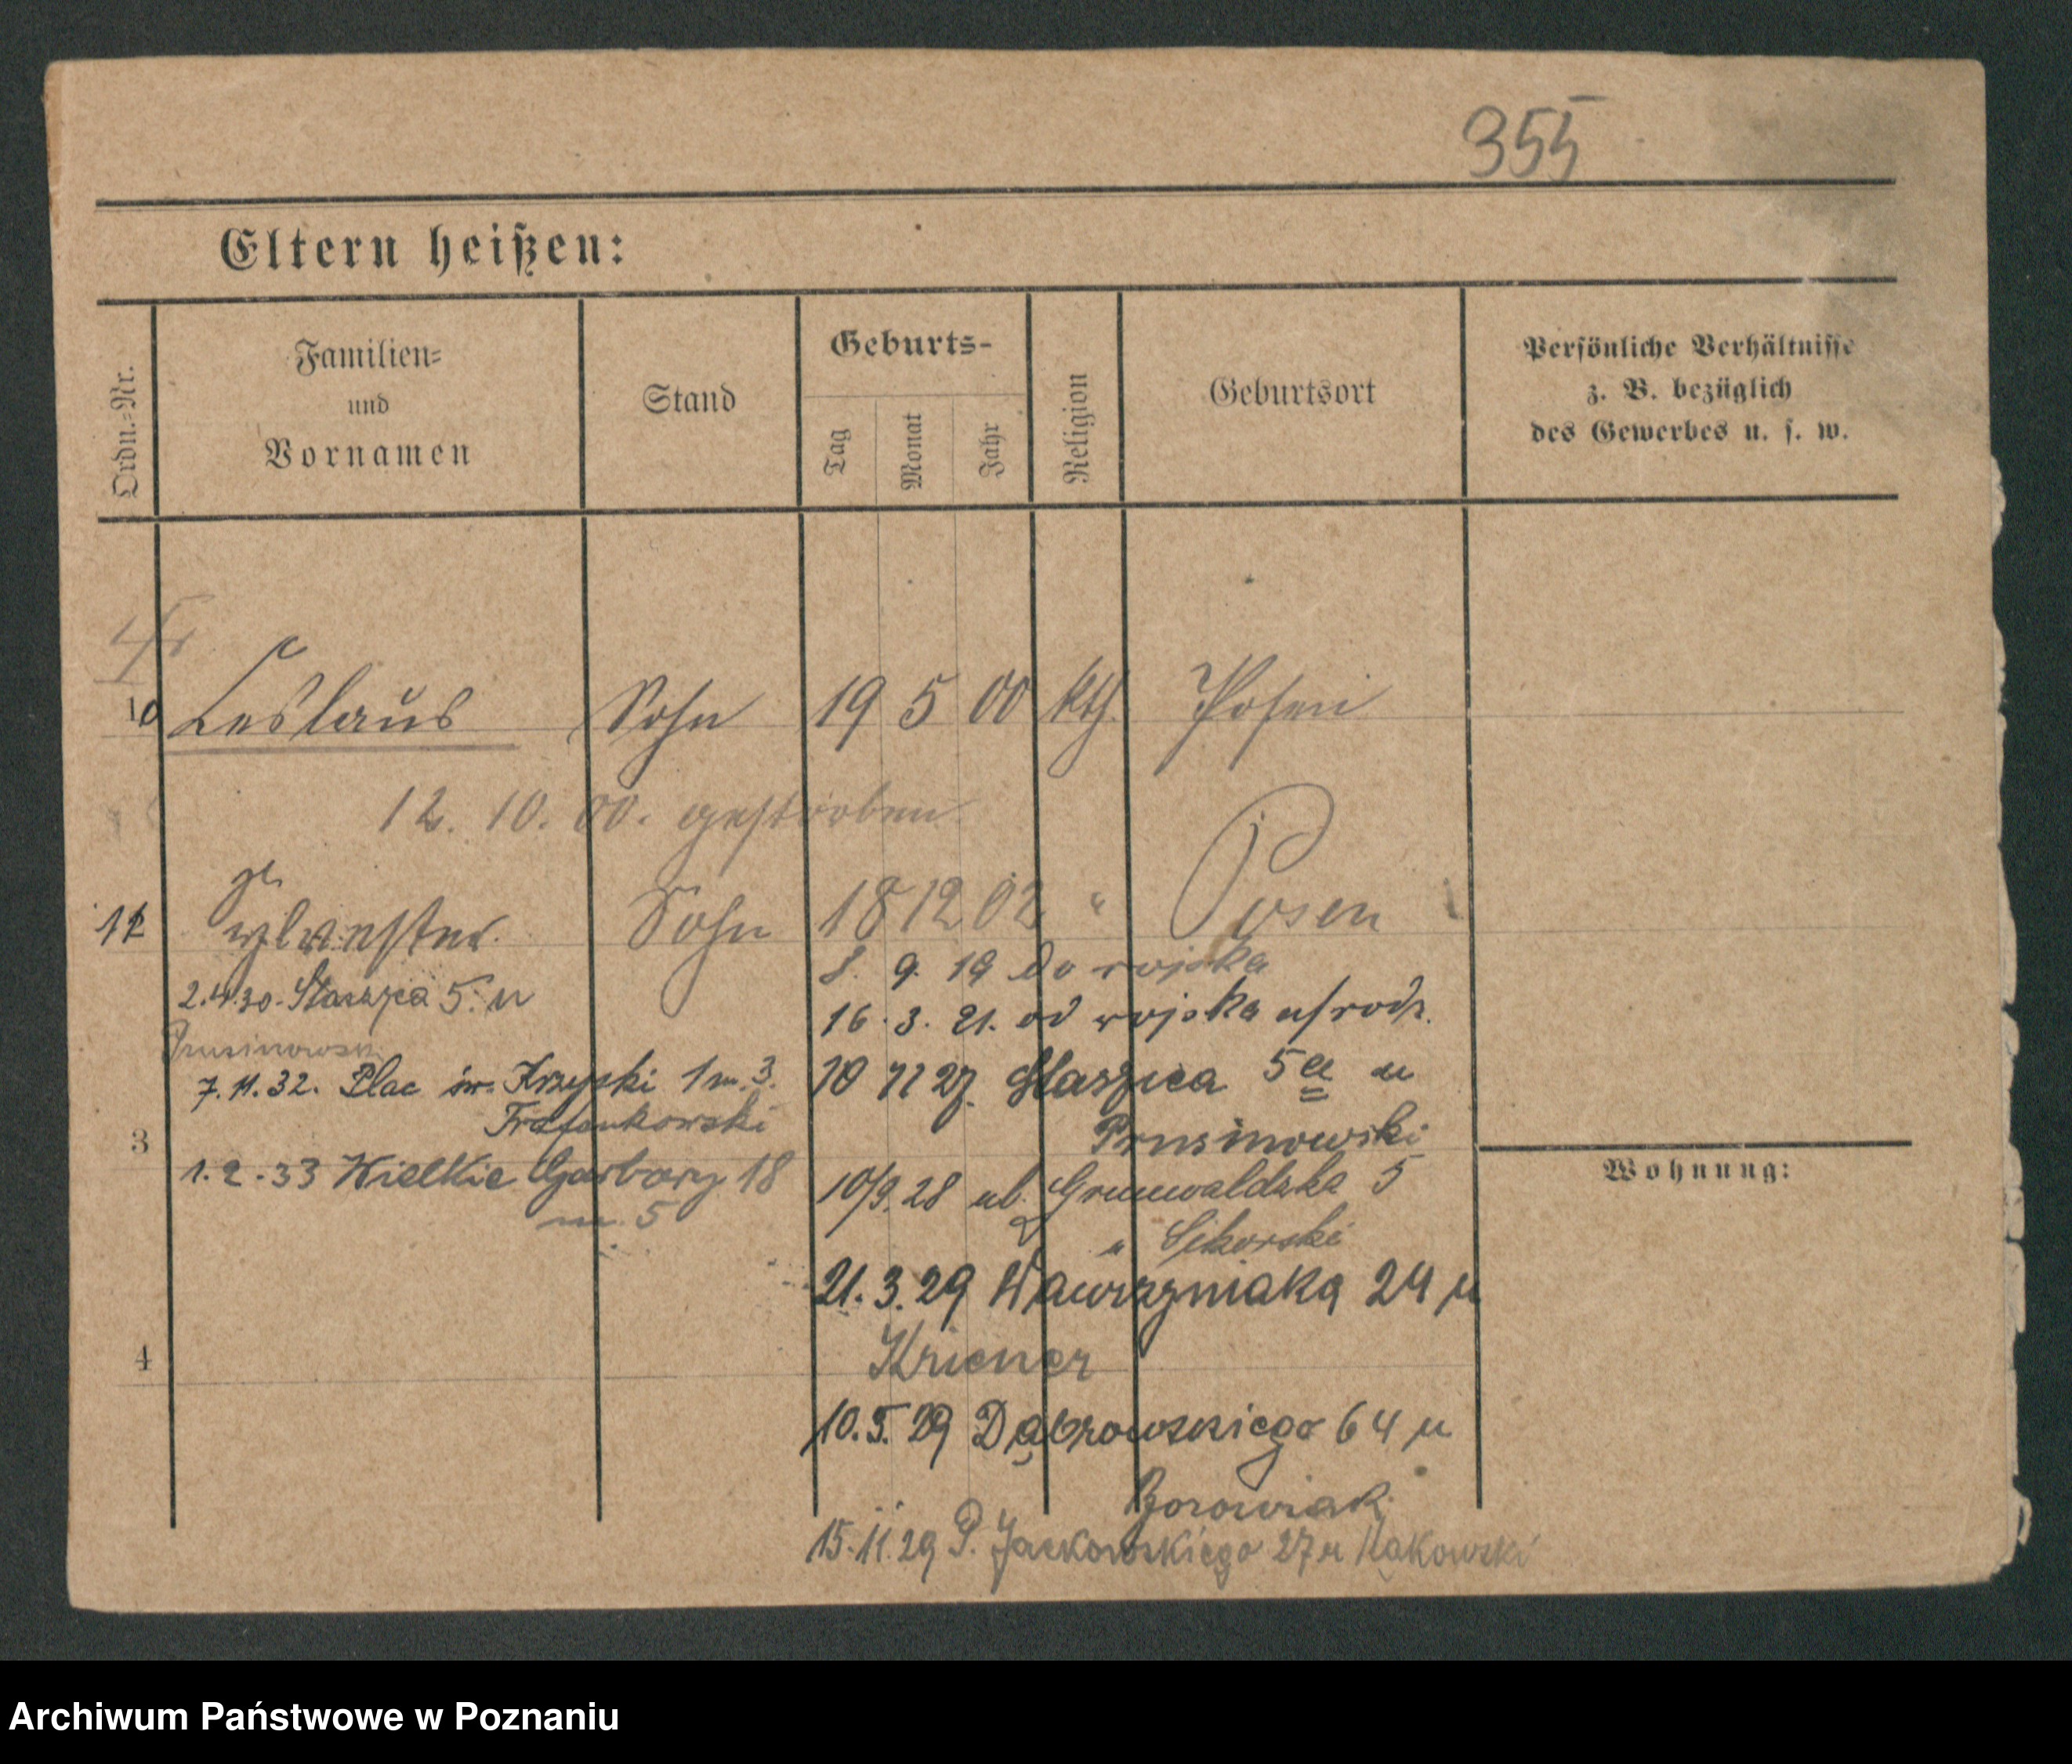 355
Eltern heißen:
Ordn.=Nr.
Familien=
und
Vornamen
Stand
Geburts-
Tag
Monat
Jahr
Religion
Geburtsort
Persönliche Verhältnisse
z. B. bezüglich
des Gewerbes u. s. w.
10 Leslaus Sohn 19 5 00 kth. Posen
12. 10. 00. gestorben
11 Sylvester Sohn 18 12 02 " Posen
8. 9. 19 Do wojska
16. 3. 21. od wojska u/rodz.
2.4.30. Staszica 5. u
Prusinowsk
10 11 27. Staszica 5 a u
Prusinowski
7. 11. 32. Plac św. Krzyski 1 m. 3.
3
1. 2. 33 Wielkie Garbary 18
m. 5
10/9. 28 ul. Grunwaldzka 5
u Sikorski
Wohnung:
21. 3. 29 Wawrzyniaka 24 u
Kriener
4
10. 5. 29 Dąbrowskiego 64 u
Borowiak
15. 11. 29 P. Jackowskiego 27 u Kąkowski
Archiwum Państwowe w Poznaniu